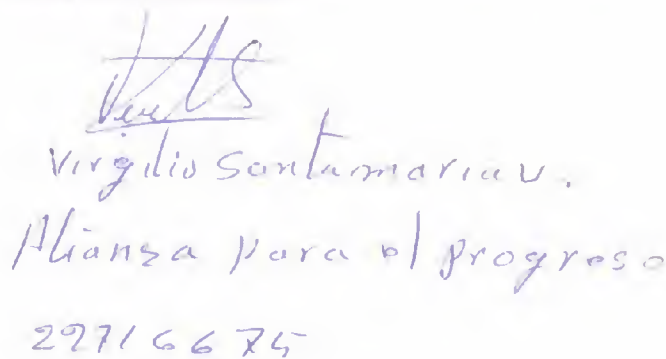 Virgilio Santamaria V.
Alianza para el progreso
29716675